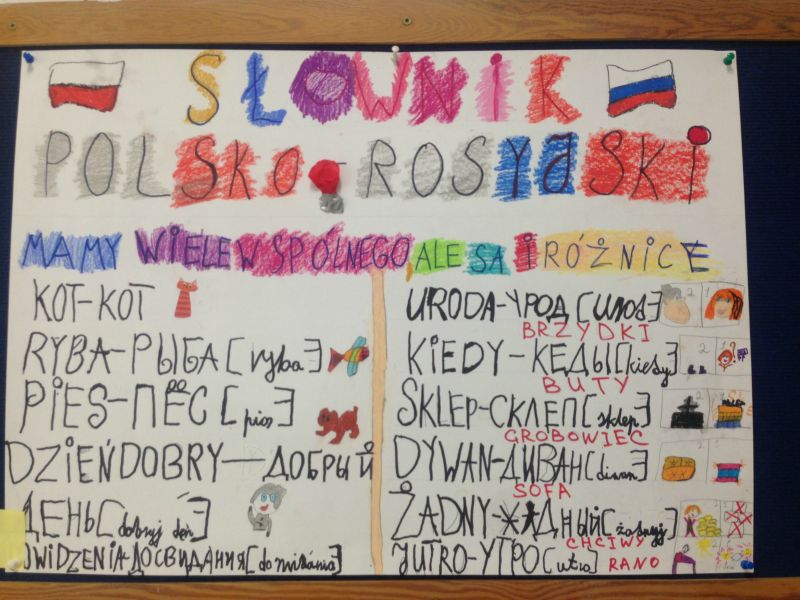 SŁOWNIK
POLSKO-ROSYJSKI
MAMY WIELE WSPÓLNEGO ALE SĄ I RÓŻNICE
KOT-KOT
RYBA-РЫБА [ryba]
PIES-ПЁС [pios]
DZIEŃDOBRY—ДОБРЫЙ
ДЕНЬ [dobryj deń]
WIDZENIA-ДОСВИДАНИЯ [do swidania]
URODA-УРОД [urod]
BRZYDKI
KIEDY-КЕДЫ [kiedy]
BUTY
SKLEP-СКЛЕП [sklep]
GROBOWIEC
DYWAN-ДИВАН [diwan]
SOFA
ŻADNY-ЖАДНЫЙ [żadnyj]
CHCIWY
JUTRO-УТРО [utro] RANO